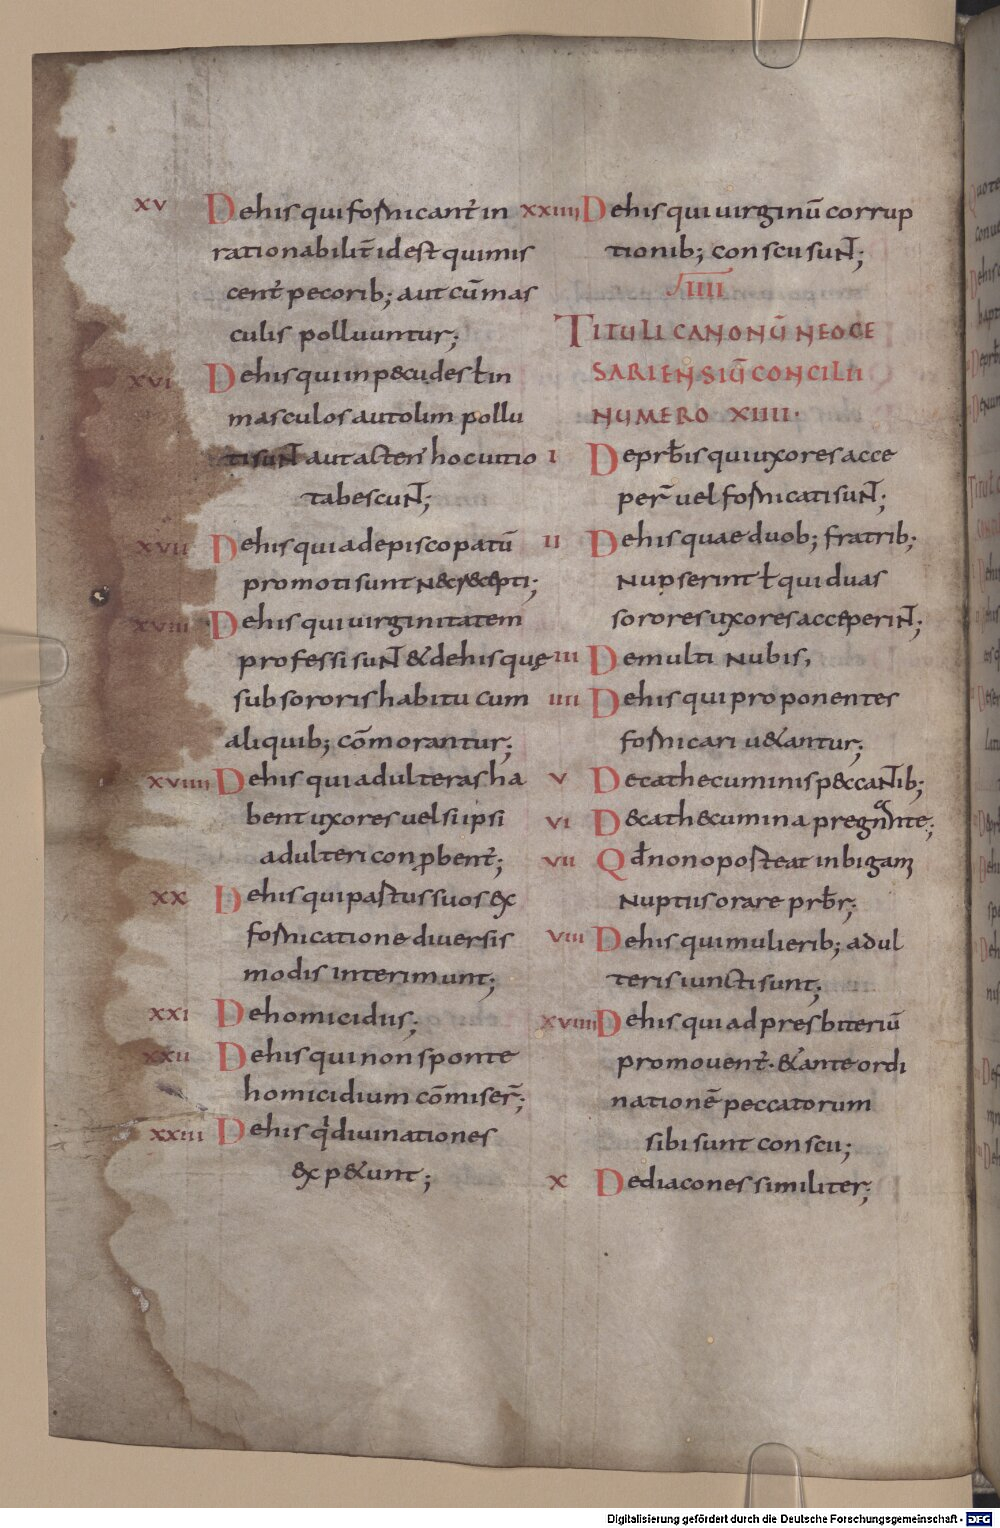 XV De his qui fornicant̄ in
rationabilit̄ id est qui mis
cent̄ pecorib; aut cū mas
culis polluuntur;
XVI De his qui in pecudes ƚ in
masculos aut olim pollu
ti sunt aut acteri hoc uitio
tabescunt;
XVII De his qui ad episcopatū
promoti sunt nec recepti;
XVIII De his qui uirginitatem
professi sunt & de his quę
sub sororis habitu cum
aliquib; cōmorantur;
XVIIII De his qui adulteras ha
bent uxores uel si ipsi
adulteri conp̱bent̄;
XX De his qui pastus suos ex
fornicatione diuersis
modis interimunt;
XXI De homicidiis;
XXII De his qui non sponte
homicidium cōmiser̄;
XXIII De his q̇ diuinationes
expetunt;
XXIIII De his qui uirginū corrup
tionib; conscii sunt;
IIII
TITULI CANONŪ NEOCE
SARIENSIŪ CONCILII
NUMERO XIIII·
I De prƀis qui uxores acce
per̄ uel fornicati sunt;
II De his quae duob; fratrib;
nupserint ƚ qui duas
sorores uxores acceperint;
III De multi nubis,
IIII De his qui proponentes
fornicari uetantur;
V De cathecuminis peccantib;
VI De cathecumina pregnante;
VII Qđ non oporteat in bigam
nuptiis orare prƀr;
VIII De his qui mulierib; adul
teris iuncti sunt;
XVIIII De his qui ad presbiteriū
promouent̄· et ante ordi
nationē peccatorum
sibi sunt conscii;
X De diacones similiter;
Digitalisierung gefördert durch die Deutsche Forschungsgemeinschaft - DFG